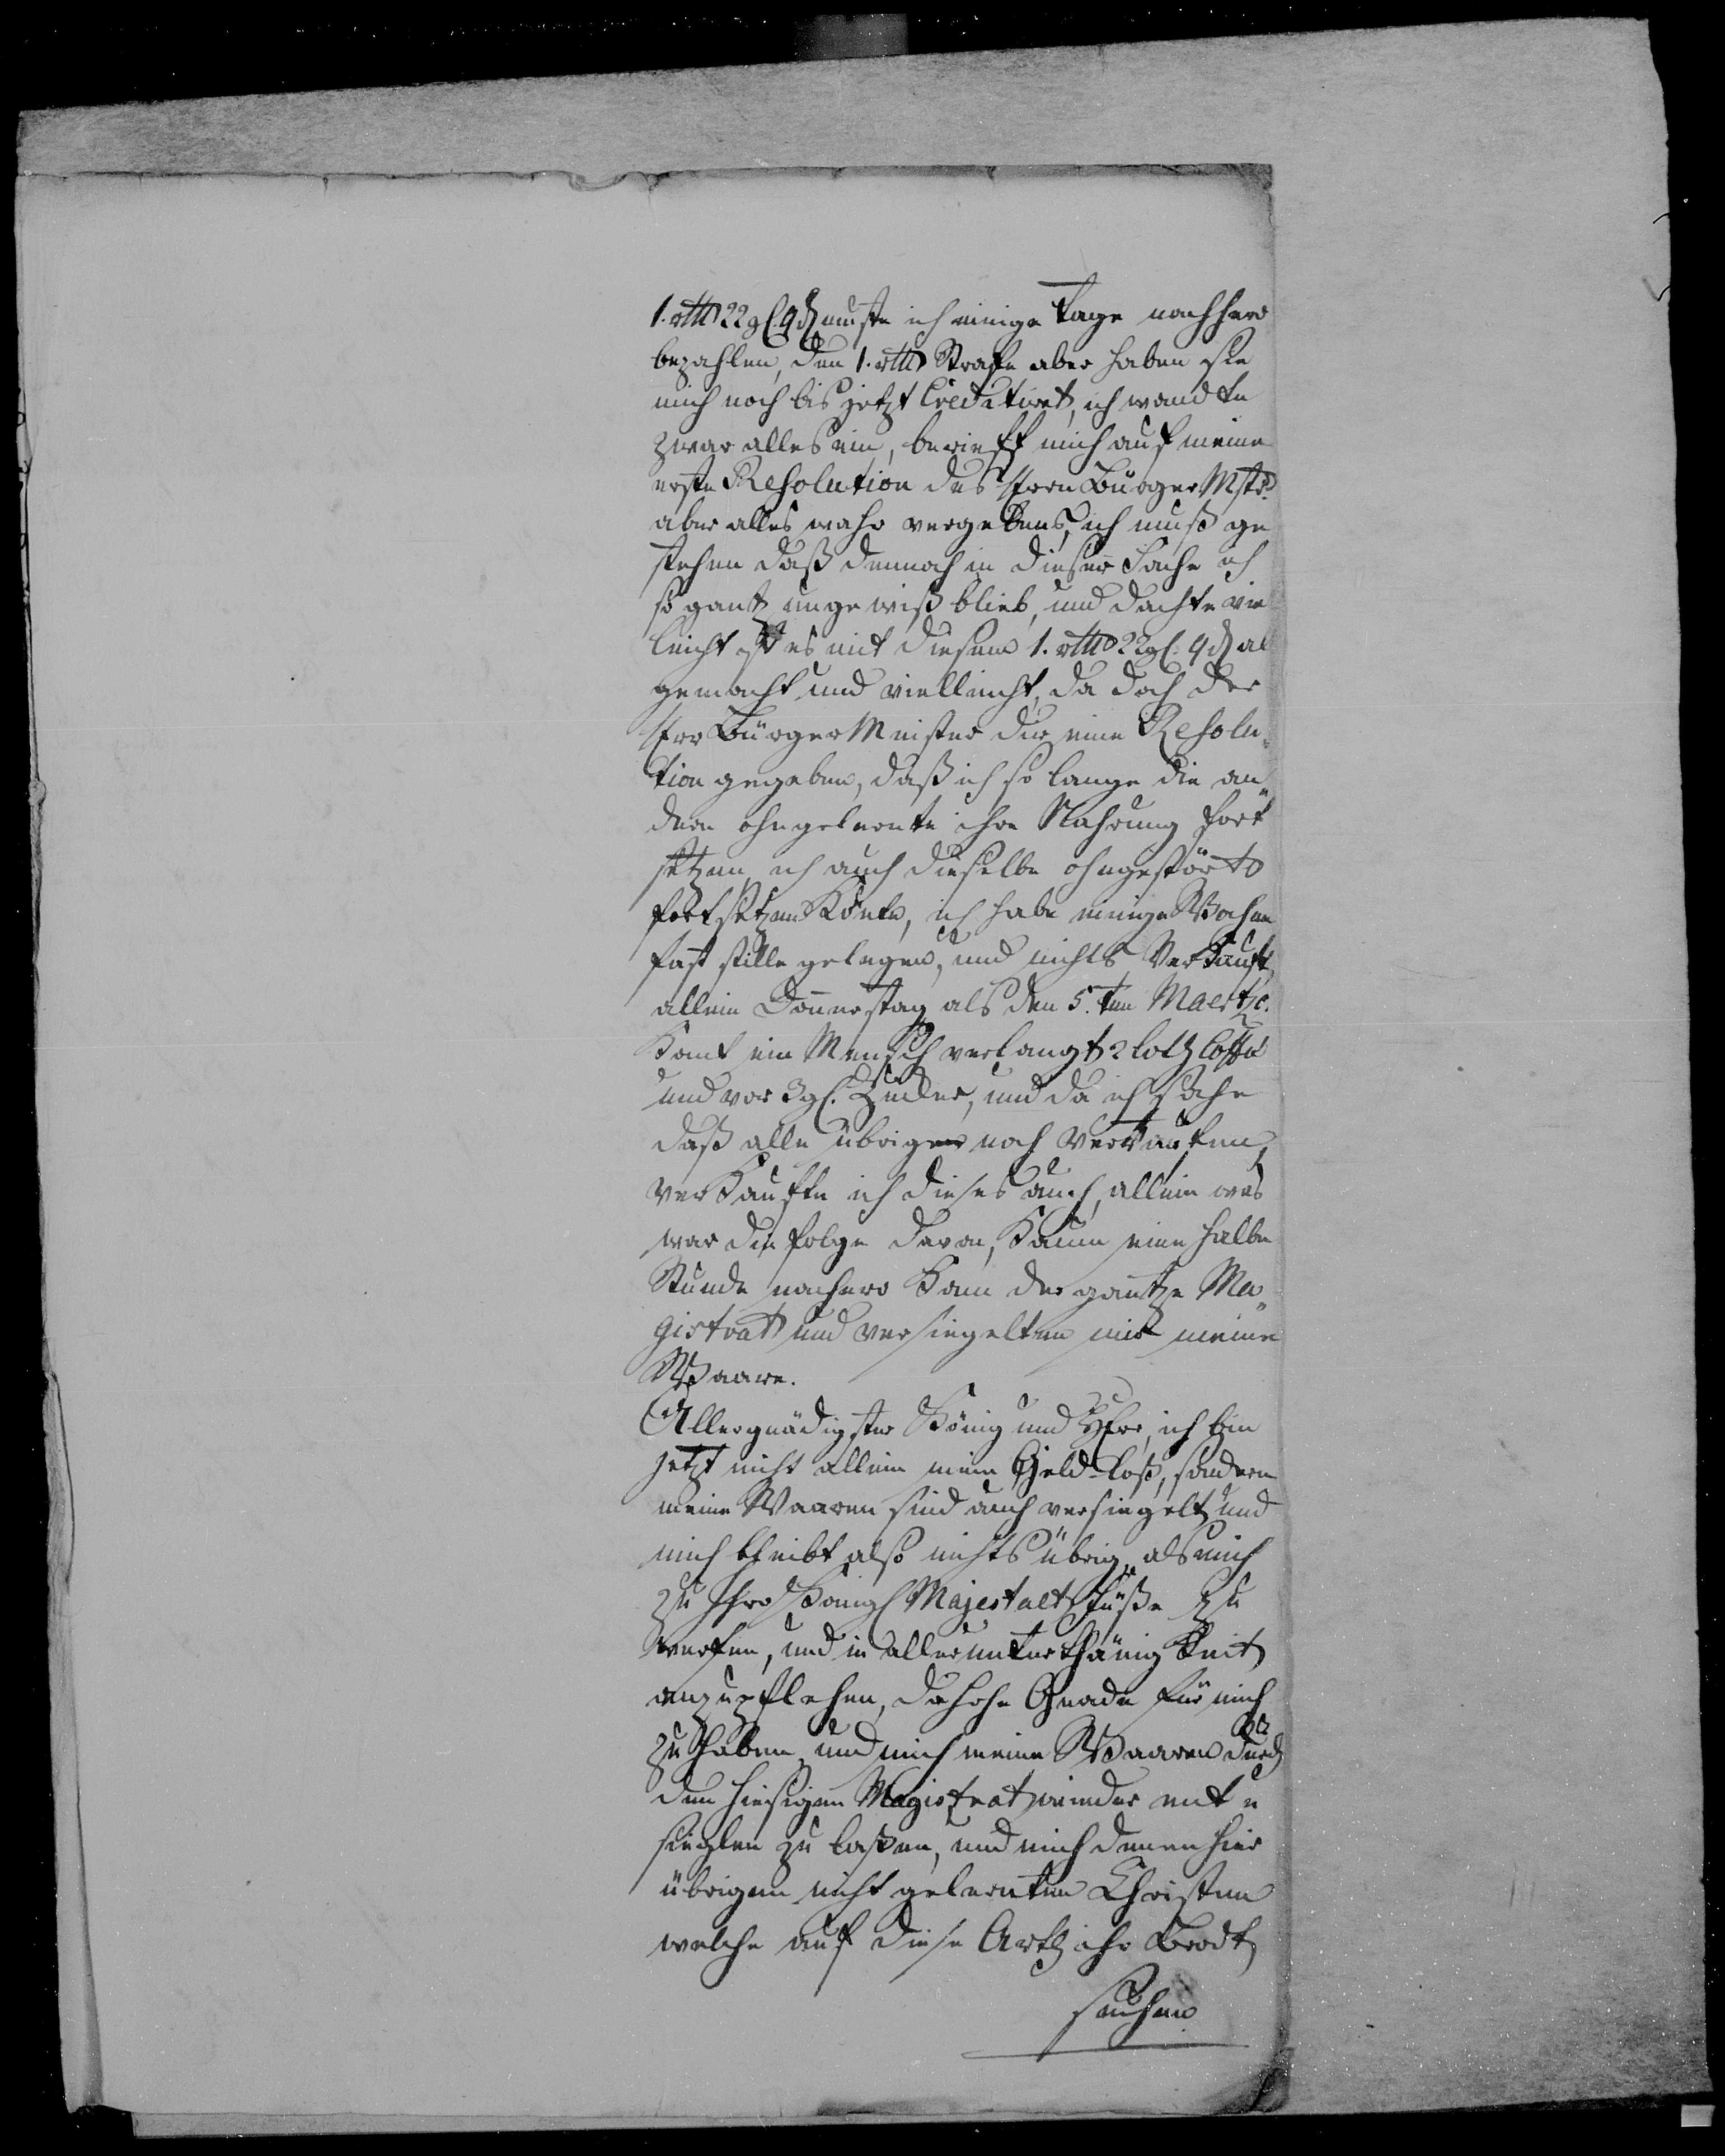 1. rthl 22 gl. 4 d muste ich einige Tage nachhero
bezahlen, den 1. rthl Strafe aber haben sie
mich noch bis jetzt Creditiret, ich wandte
zwar alles ein, berieff mich auf meine
erste Resolution des Herrn Bürger Mstr.
aber alles wahr vergebens, ich muß ge
stehen daß dennoch in dieser Sache ich
so gantz ungewiß blieb, und dachte vie
leicht ist es mit diesem 1. rthl 22 gl. 4 d al
gemacht und vielleicht, da doch der
Herr Bürger Meister dir eine Resolu„
tion gegeben, daß ich so lange die an„
dern ohngelernte ihre Nahrung fort
setzen, ich auch dieselbe ohngestört
fortsetzen könte, ich habe einige Wochen
fast stille gelegen, und nichts Verkauft,
allein Donnerstag als den 5.ten Maertz c.
komt ein Mensch verlangt 2 loth Coffé
und vor 3 gl. Zucker, und da ich sahe
daß alle übrigen noch verkaufen,
verkaufte ich dieses auch, allein was
war die folge davon, kaum eine halbe
Stunde nachero kam der gantze Ma„
gistrat und versiegelten mir meine
Waare.
Allergnädigster König und Herr, ich bin
jetzt nicht allein mein Geld-loß, sondern
meine Waaren sind auch versiegelt und
mich bleibt also nichts übrig, als mich
zu Ihro Königl Majestaet Füße zu
werfen, und in allerunterthänigkeit
anzuflehen, da hohe Gnade für mich
zu haben, und mich meine Waaren durch
den hiesigen Magistrat wieder ent„
sieglen zu laßen, und mich denen hier
übrigen nicht gelernten Christen
welche auf diese Arth ihr Brodt
suchen